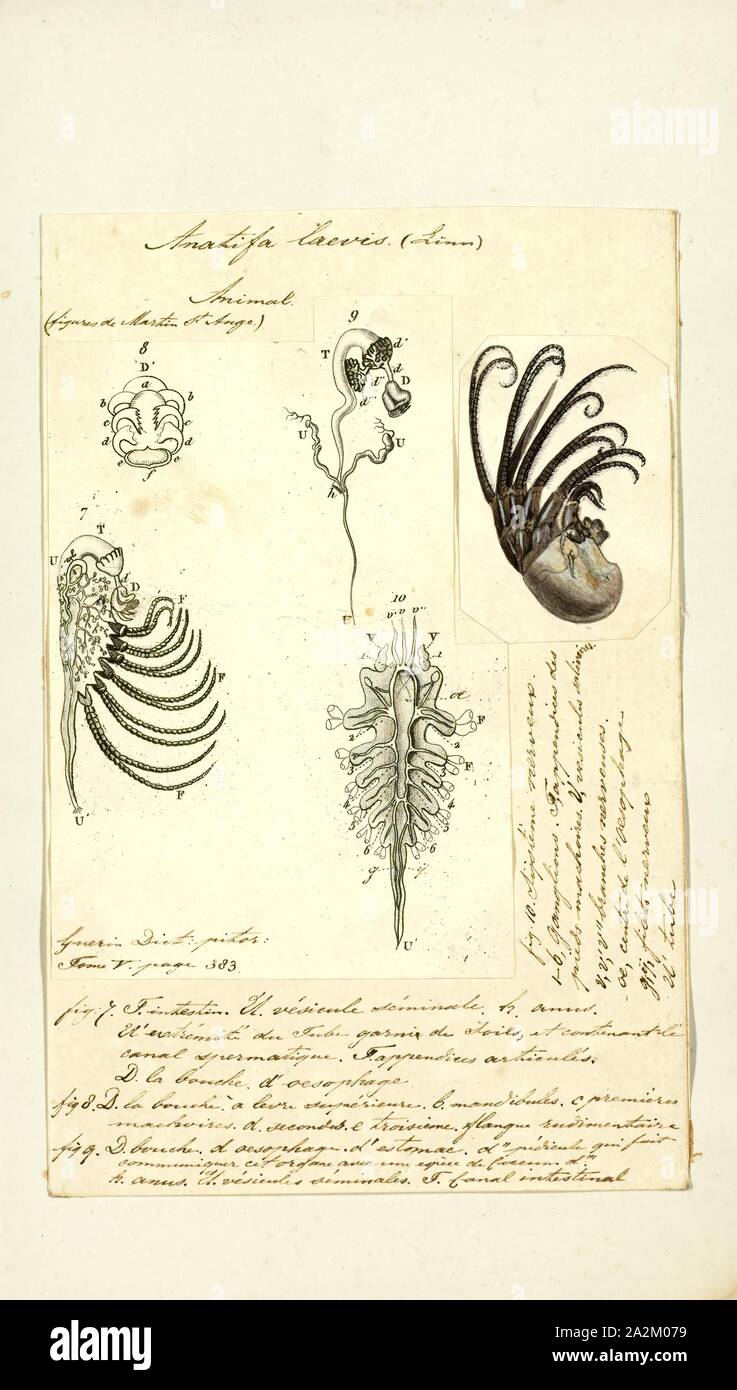 Anatifa laevis. (Linn)
Animal.
(figures de Martin St Ange.)
8
D'
a
b b
c c
d d
e e
f
9
T
d'
d
d'' D
d'''
U U
h
U
7
T
U
d
D
F
F
F
U'
10
v. v' v''
V V
1 1
œ
F
2 2
3
F
4 4
5 5
6 6
g y
U'
fig 10. Système nerveux.
1-6, ganglions. F, appendices des
pieds machoires. V, vésicules salivaires
v, v', v'' branches nerveuses.
œ, centre de l'oesophage
filets nerveux
U' tube
Guerin Dict: pitor:
Tome V. page 383
fig: 7. T. intestin. U. vésicule séminale. h. anus.
U' extrémité du Tube garni de Soies, et contenant le
canal spermatique. F. appendices articulés.
D. la bouche. d' oesophage
fig 8. D. la bouche a levre supérieure. b. mandibules. c premieres
machoires. d. secondes. e troisième. f langue rudimentaire
fig 9. D. bouche. d oesophage. d' estomac. d'' pédicule qui fait
communiquer cet organe avec une espèce de Coecum d'''
h. anus. U. vésicules séminales. T. Canal intestinal
alamy
a
a
a
alamy
Image ID: 2A2M079
www.alamy.com